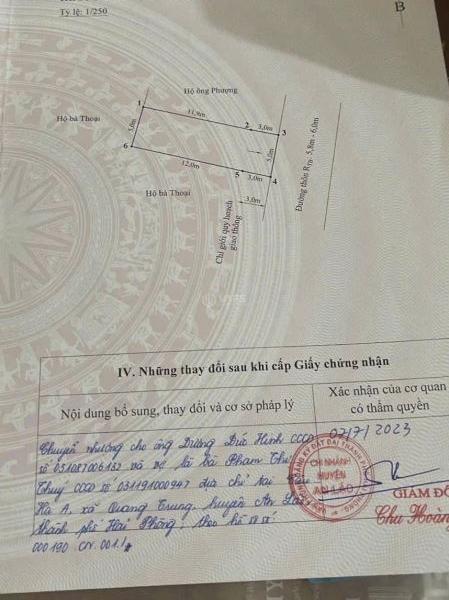 Tỷ lệ: 1/250
B
Hộ ông Phượng
1
11,9m
2
3,0m
3
Hộ bà Thoại
5,0m
5,0m
6
12,0m
5
3,0m
4
Hộ bà Thoại
3,0m
Chỉ giới quy hoạch
giao thông
Đường thôn RTB: 5,8m - 6,0m
IV. Những thay đổi sau khi cấp Giấy chứng nhận
Nội dung bổ sung, thay đổi và cơ sở pháp lý
Xác nhận của cơ quan
có thẩm quyền
Chuyển nhượng cho ông Dương Đức Hinh CCCD
số 031087006182 và vợ là bà Phạm Thị
Thuý CCCD số 031191000947 địa chỉ tại
Hà A, xã Quang Trung, huyện An Lão
thành phố Hải Phòng, theo hồ sơ số
000190.CN.001./.
07/7/2023
CHI NHÁNH
HUYỆN
AN LÃO
GIÁM ĐỐ
Chu Hoàng